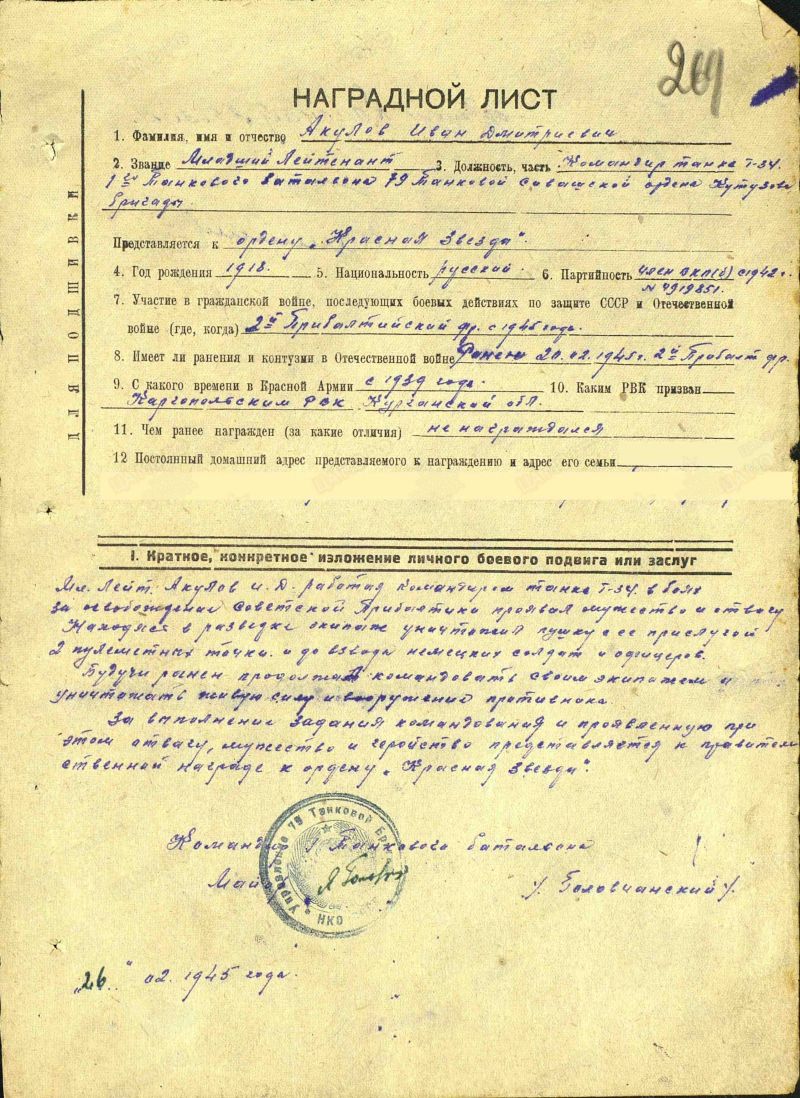 269
НАГРАДНОЙ ЛИСТ
1. Фамилия, имя и отчество Акулов Иван Дмитриевич
2. Звание Младший Лейтенант 3. Должность, часть Командир танка Т-34.
1го Танкового Баталиона 79 Танковой Сивашской ордена Кутузова
бригады.
Представляется к ордену „Красная Звезда".
4. Год рождения 1918. 5. Национальность русский. 6. Партийность член ВКП(б) с 1942 г.
N 4919851.
7. Участие в гражданской войне, последующих боевых действиях по защите СССР и Отечественной
войне (где, когда) 2й Прибалтийский фр. с 1945 года.
8. Имеет ли ранения и контузии в Отечественной войне Ранен 20.02.1945г. 2й Прибалт фр.
9. С какого времени в Красной Армии с 1939 года. 10. Каким РВК призван
Каргопольским РВК Курганской обл.
11. Чем ранее награжден (за какие отличия) не награждался
12 Постоянный домашний адрес представляемого к награждению и адрес его семьи
ДЛЯ ПОДШИВКИ
I. Краткое, конкретное изложение личного боевого подвига или заслуг
Мл. Лейт. Акулов И. Д. работая командиром танка Т-34. в боях
за освобождение Советской Прибалтики проявил мужество и отвагу
Находясь в разведке экипаж уничтожил пушку с ее прислугой
2 пулеметных точки. и до взвода немецких солдат и офицеров.
Будучи ранен продолжал командовать своим экипажем и
уничтожать живую силу и вооружение противника.
За выполнение задания командования и проявленную при
этом отвагу, мужество и геройство представляется к правитель
ственной награде к ордену „Красная Звезда".
Командир 1 Танкового баталиона
Майор /Головчанский/.
Управление 79 Танковой Бр
НКО
„26" 02. 1945 года.